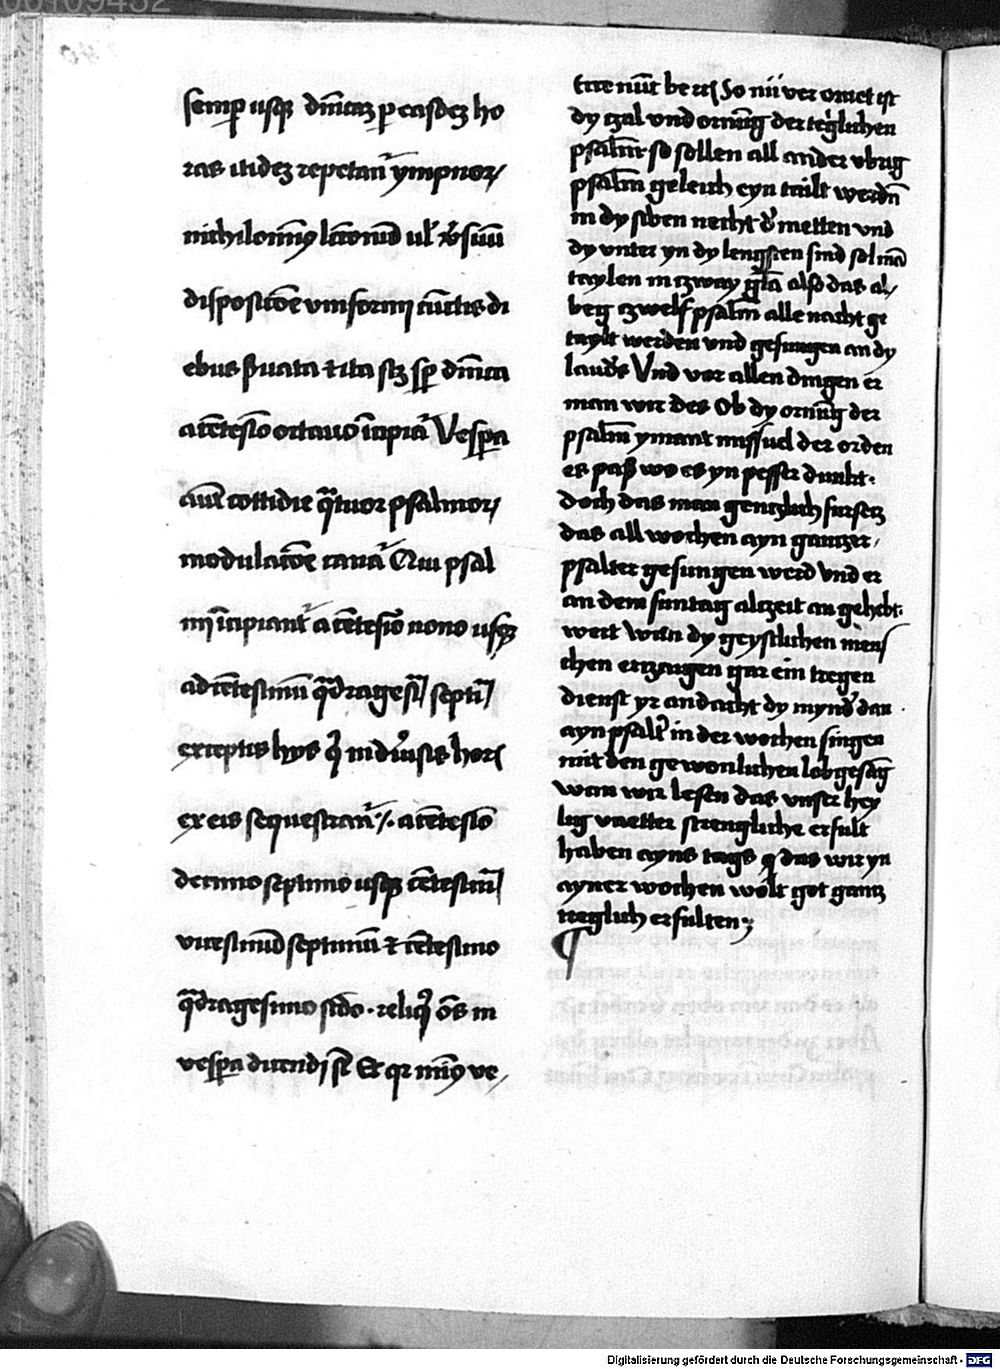 semp usqꝫ dn̄icaꝫ p easdeꝫ ho
ras itideꝫ repetan̄ ympnor
nichilomin9 lc̄conū ul' v̓suū
disposicōe uniformi cūctis di
ebus s̓uata ⁊ ita scꝫ sp dn̄ica
a cētesīo octauo īcipiā Vespa
aūt cottidie q̄tuor psalmor
modulacōe canā Qui psal
mi īcipiant̄ a cētesīo nono usqꝫ
ad cētesimū q̄dragesī septī
exceptis hijs q̄ in diu̓sis horis
ex eis sequestran̄ ·/· a cētesīo
decimo septimo usqꝫ cētesimū
vicesimū septimū ⁊ cētesimo
q̄dragesimo scd̄o · reliq̄ ōs in
vespa dicendi st̄ Et qr min9 ve
dy czal vnd ornūg der teglichen
psalm̄ so sollen all ander vbrig
psalm̄ geleich eyn tailt werdn̄
in dy siben necht d̓ metten vnd
dy vnter yn dy lengsten sind sol mā
taylen in czway gl̄a also das al
beg czwelf psalm̄ alle nacht ge
taylt werden vnd gesungen an dy
laud̓s Vnd vor allen dingen er
man wir des Ob dy ornūg der
psalm̄ ymant missuel der orden
es paß wo es yn pesser dunkt ·
doch das man genczlich fursecz
das all wochen ayn ganczer
psalter gesungen werd Vnd er
an dem suntag alczeit an gehebt
wert Wan dy geystlichen men
schen erczaygen gar ein tregen
dienst yr andacht dy mynd̓ dan
ayn psalt̓ in der wochen singen
mit den gewonlichen lobgesāg
wan wir lesen das vnser hey
lig vaetter strengliche erfult
haben ayns tags q das wir yn
ayner wochen wolt got gancz
treglich erfulten
¶
Digitalisierung gefördert durch die Deutsche Forschungsgemeinschaft - DFG